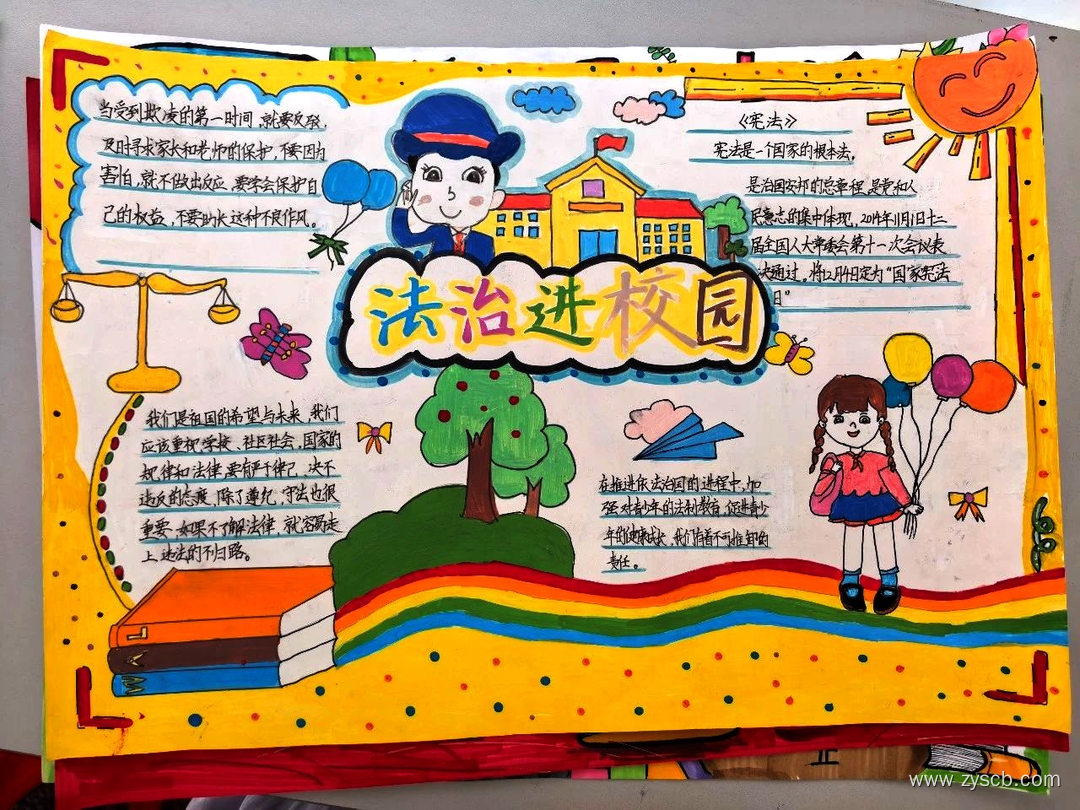 当受到欺凌的第一时间,就要反驳,
及时寻求家长和老师的保护,不要因为
害怕,就不做出反应,要学会保护自
己的权益,不要助长这种不良作风。
《宪法》
宪法是一个国家的根本法,
是治国安邦的总章程,是党和人
民意志的集中体现,2014年11月1日十二
届全国人大常委会第十一次会议表
决通过,将12月4日定为“国家宪法
日”
法治进校园
我们是祖国的希望与未来,我们
应该重视学校、社区社会、国家的
规律和法律,要有严于律己、决不
违反的态度,除了尊允,守法也很
重要,如果不了解法律,就容易走
上违法的不归路。
在推进依法治国的进程中,加
强对青少年的法制教育,促进青少
年的健康成长,我们有着不可推卸的
责任。
LAW
www.zyscb.com